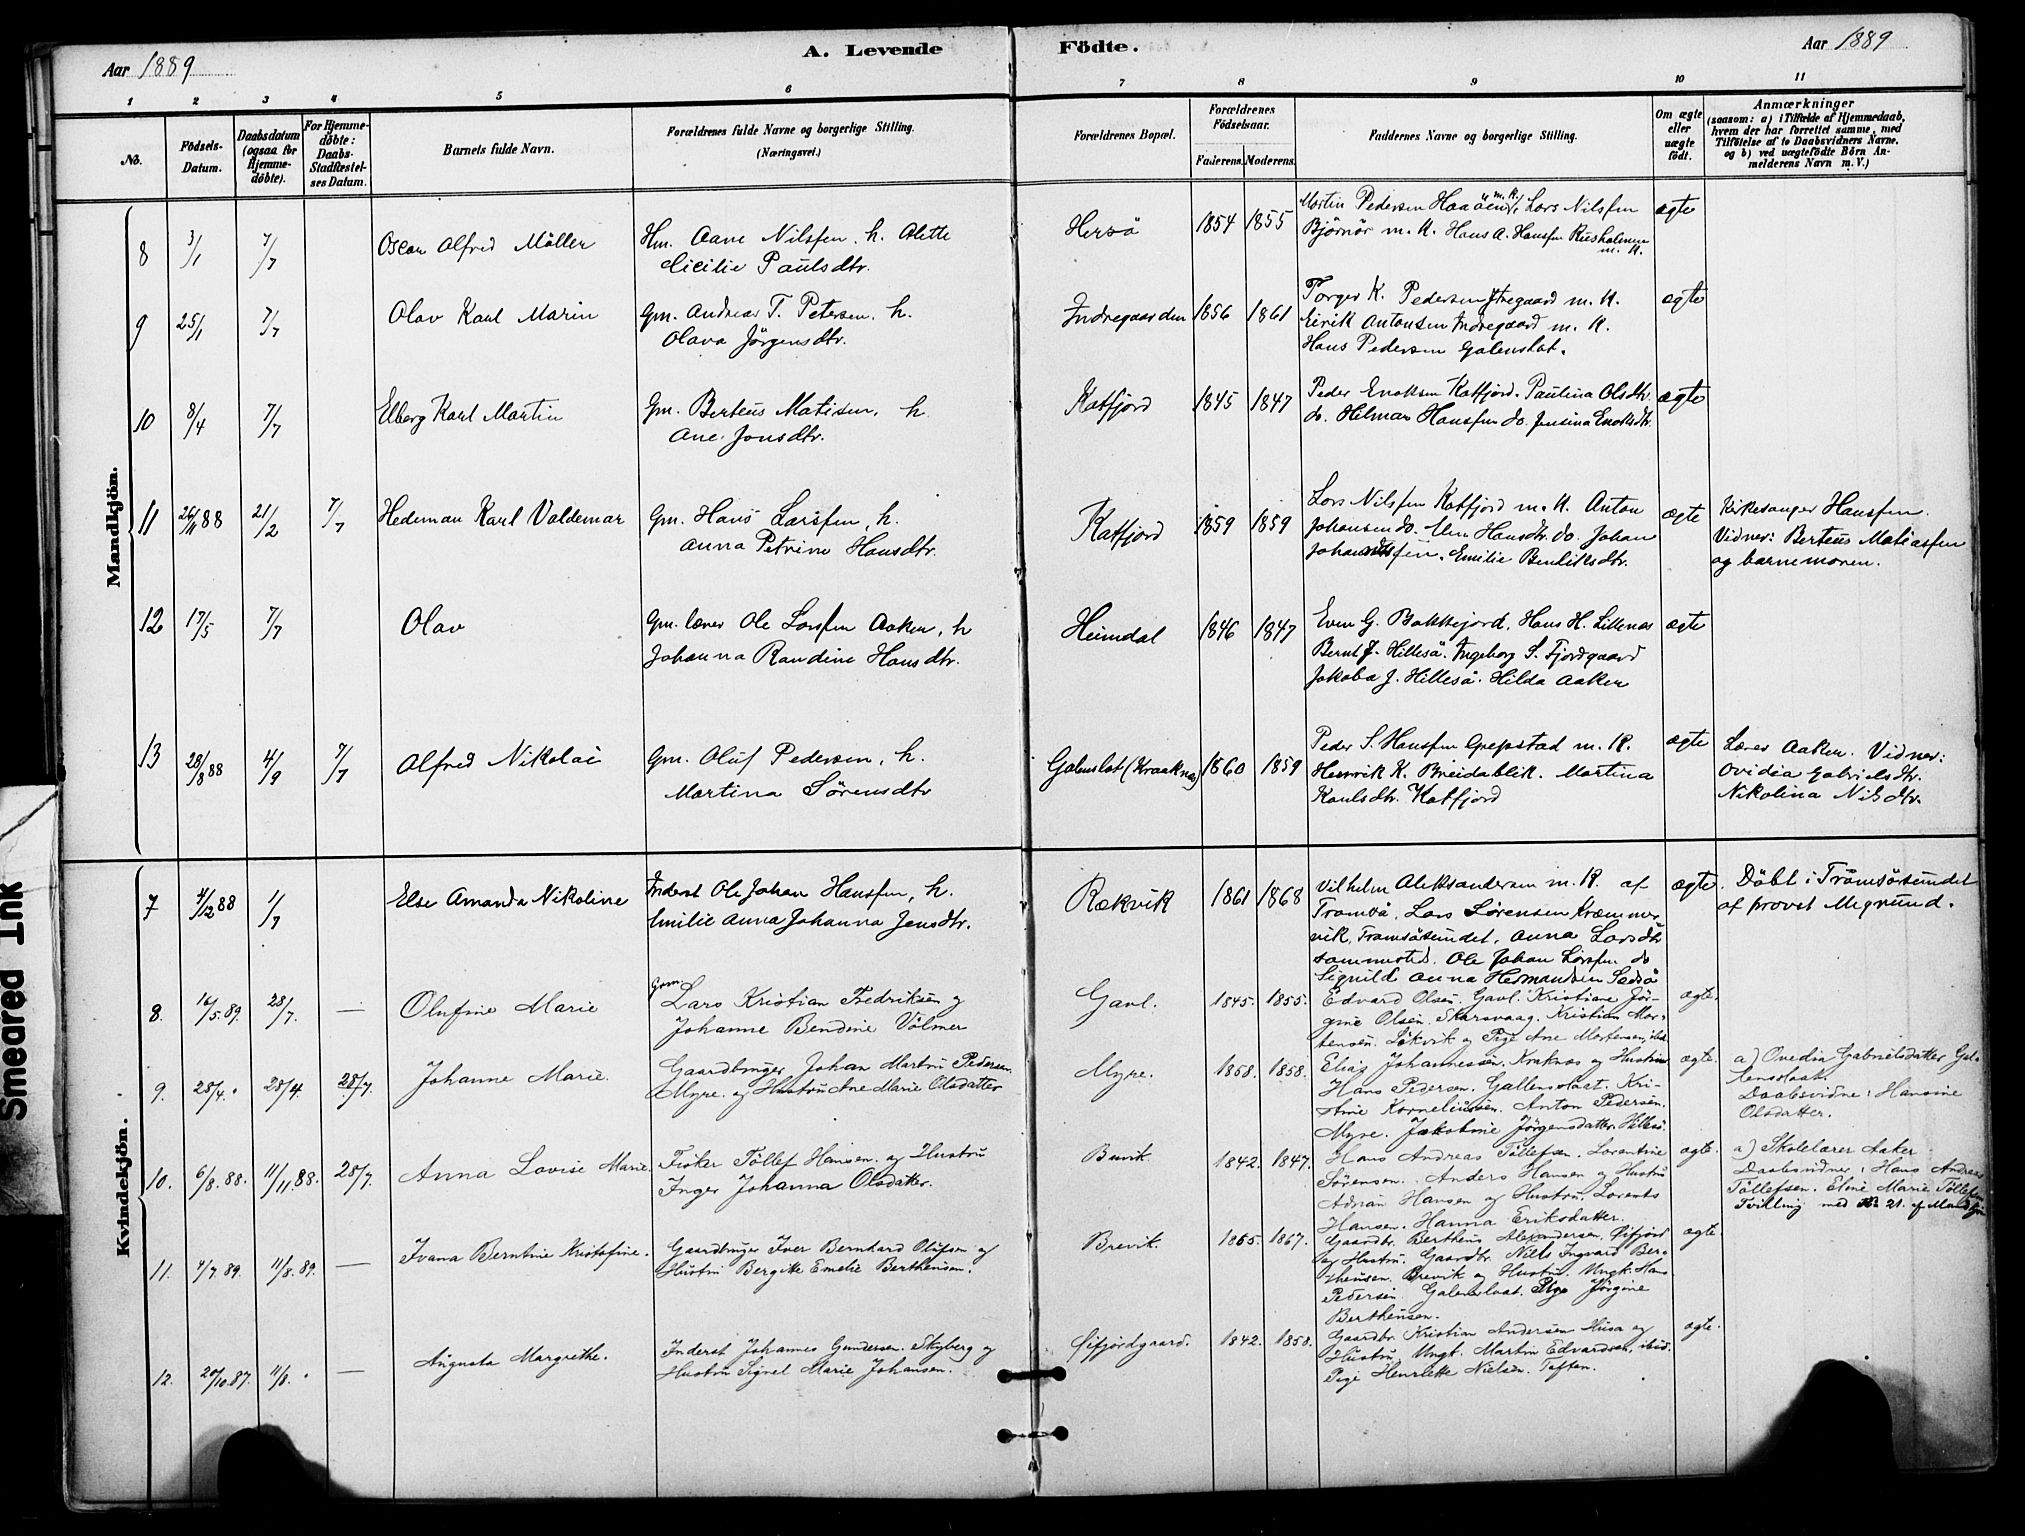 A. Levende Fødte.
Aar 1889
Aar 1889
1 2 3 4 5 6 7 8 9 10 11
No.
Födsels-
Datum.
Daabsdatum
(ogsaa for
Hjemme-
döbte).
For Hjemme-
döbte:
Daabs-
Stadfæstel-
ses Datum.
Barnets fulde Navn.
Forældrenes fulde Navne og borgerlige Stilling.
(Næringsvei.)
Forældrenes Bopæl.
Forældrenes
Födselsaar.
Faderens. Moderens.
Faddernes Navne og borgerlige Stilling.
Om ægte
eller
uægte
født.
Anmærkninger
(saasom: a) i Tilfælde af Hjemmedaab,
hvem der har forrettet samme, med
Tilföielse af to Daabsvidners Navne,
og b) ved uægtefödte Börn An-
melderens Navn m. V.)
Mandkjön.
8 3/1 7/7 Oscar Alfred Möller
Hm. Aane Nilssen, h. Alette
Cicilie Paulsdtr.
Hersö 1854 1855
Martin Pedersen Haaöen m. K., Lars Nilssen
Bjørnör m. K. Hans A. Hanssen Rusholmen
m. K.
ægte
9 25/1 7/7 Olav Karl Marin
Gm. Andreas T. Petersen, h.
Olava Jörgensdtr.
Indregaarden 1856 1861
Torger K. Pedersen Ytregaard m. K.
Eirik Antonsen Indregaard m. K.
Hans Pedersen Galenslat.
ægte
10 8/4 7/7 Elberg Karl Martin
Gm. Berteus Matisen, h.
Ane Jonsdtr.
Katfjord 1845 1847
Peder Enoksen Katfjord. Paulina Olsdtr.
do. Helmar Hanssen do. Jensina Enoksdtr.
ægte
11 26/11 88 21/2 7/7 Hedeman Karl Valdemar
Gm. Hans Larssen, h.
Anna Petrine Hansdtr.
Katfjord 1859 1859
Lars Nilssen Katfjord m. K. Anton
Johansen do. Elen Hansdtr. do. Johan
Johannessen. Emilie Benliksdtr.
ægte
Kirkesanger Hanssen.
Vidner: Berteus Matiassen
og barnemoren.
12 17/5 7/7 Olav
Gm. lærer Ole Larssen Aaker, h
Johanna Randine Hansdtr.
Heimdal 1846 1847
Even G. Bakkejord. Hans H. Lillenes
Bernt J. Hillesö. Ingeborg S. Fjordgaard
Jakoba J. Hillesö. Hilda Aaker
ægte
13 28/8 88 4/9 7/7 Alfred Nikolai
Gm. Oluf Pedersen, h.
Martina Sörensdtr
Galenslat (Kraaknes) 1860 1859
Peder S. Hanssen Grepstad m. K.
Henrik K. Breidablik. Martina
Karlsdtr. Katfjord
ægte
Lærer Aaker. Vidner:
Ovidia Gabrielsdtr.
Nikolina Nilsdtr.
Kvindekjön.
7 4/12 88 1/7 Else Amanda Nikoline
Inderst Ole Johan Hanssen, h.
Emilie Anna Johanna Jensdtr.
Rækvik 1861 1868
Vilhelm Aleksandersen m. K. af
Tromsö. Lars Sørensen Kræmmer-
vik, Tromsösundet. Anna Larsdtr
sammested. Ole Johan Larssen do
Signild Anna Hermandsen
ægte.
Döbt i Tromsösundet
af provst Mcgrund.
8. 16/5. 89. 28/7. —
Olufine Marie
Gm. Lars Kristian Fredriksen og
Johanne Bendine Volmer
Gavl. 1845. 1855.
Edvard Olsen. Gavl. Kristiane Jör-
gine Olsen. Skarsvaag. Kristian Mor-
tensen. Løkvik og Pige Ane Mortensen, ibid
ægte.
9. 28/4. 28/4 28/7.
Johanne Marie.
Gaardbruger Johan Martin Pedersen
Myre. og Hustru Ane Marie Olsdatter
Myre. 1858. 1858.
Elias Johannessen. Kraknes og Hustru
Hans Pedersen. Gallenslaat. Kri-
stine Korneliussen. Anton Pedersen.
Myre. Jakobine Jörgensdatter. Hillesö.
ægte.
a) Ovedia Gabrielsdatter Gal-
lenslaat.
Daabsvidne: Hansine
Olsdatter.
10. 6/8. 88. 11/11. 88. 28/7.
Anna Lovise Marie.
Fisker Töllef Hansen. og Hustru
Inger Johanna Olsdatter.
Buvik 1842. 1847.
Hans Andreas Töllefsen. Lorentine
Sörensen. Anders Hansen og Hustru
Adrian Hansen og Hustru. Lorents
Hansen. Hanna Eriksdatter.
ægte.
a) Skolelærer Aaker
Daabsvidner: Hans Andreas
Töllefsen. Eline Marie Töllefsen
Tvilling med No 21. af Mandkjön
11. 4/7. 89. 11/8. 89. —
Ivana Berntine Kristofine.
Gaardbruger Iver Bernhard Olufsen og
Hustru Bergitte Emelie Berthensen.
Brevik. 1865. 1867.
Gaardbr. Bertheus Alexandersen. Gifjord
og Hustru. Gaardbr. Nils Ingvard Ber-
theusen. Brevik og Hustru. Ungk. Hans
Pedersen. Galenslaat. Pige Jörgine
Bertheusen.
ægte.
12. 20/10. 87. 11/8. —
Augusta Margrethe.
Inderst Johannes Gundersen. Skyberg og
Hustru Signel Marie Johansen.
Gifjordgaard. 1842. 1858.
Gaardbr. Kristian Andersen Husa og
Hustru. Ungk. Martin Edvardsen, ibid.
Pige Henriette Nielsen. Toften.
ægte.
Smeared Ink